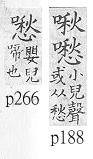 嬰兒
啼也
p266
啾
小兒聲
或从愁
p188